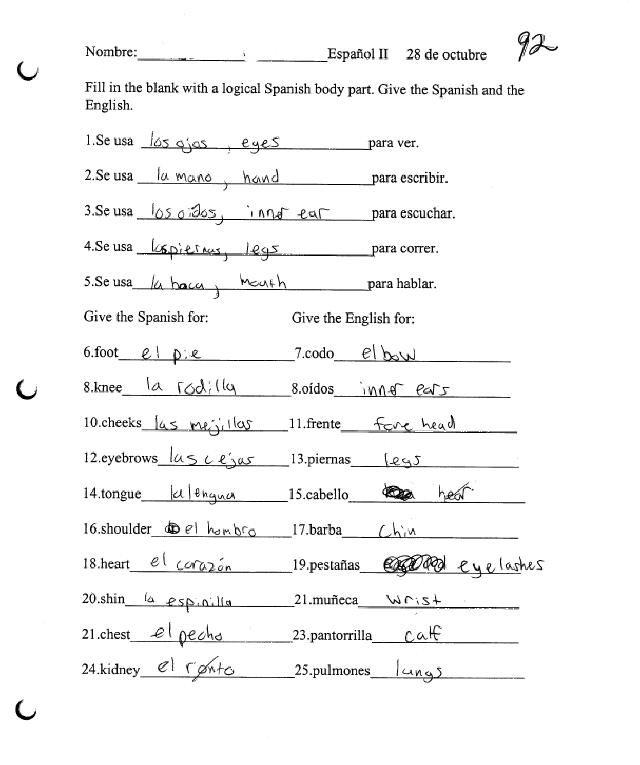 Nombre: Español II 28 de octubre 92
Fill in the blank with a logical Spanish body part. Give the Spanish and the
English.
1.Se usa los ojos, eyes para ver.
2.Se usa la mano, hand para escribir.
3.Se usa los oidos, inner ear para escuchar.
4.Se usa las piernas, legs para correr.
5.Se usa la boca, mouth para hablar.
Give the Spanish for: Give the English for:
6.foot el pie 7.codo elbow
8.knee la rodilla 8.oídos inner ears
10.cheeks las mejillas 11.frente fore head
12.eyebrows las cejas 13.piernas legs
14.tongue la lengua 15.cabello
16.shoulder el hombro 17.barba chin
18.heart el corazón 19.pestañas eyelashes
20.shin la espinilla 21.muñeca wrist
21.chest el pecho 23.pantorrilla calf
24.kidney el 25.pulmones lungs